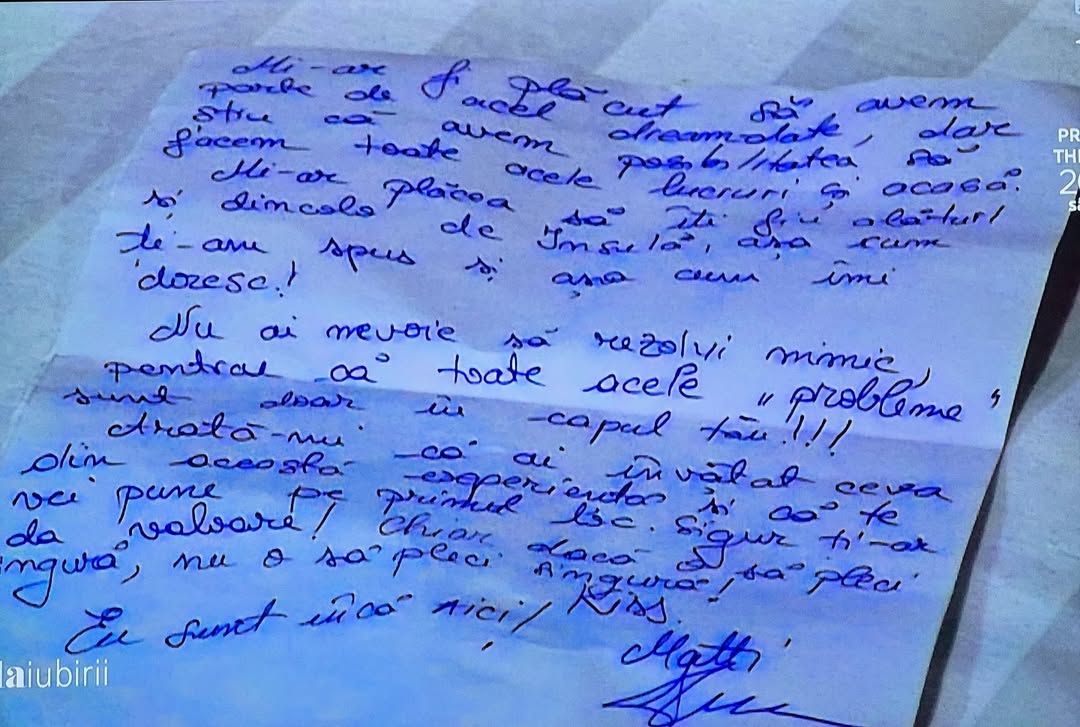 Mi-ar fi plăcut să avem
parte de acel dreamdate, dar
știu că avem posibilitatea să
facem toate acele lucruri și acasă.
Mi-ar plăcea să îți fiu alături
și dincolo de Insulă, așa cum
te-am spus și așa cum îmi
doresc!
Nu ai nevoie să rezolvi nimic,
pentru că toate acele "probleme"
sunt doar în capul tău!!!
Arată-mi că ai învățat ceva
din această experiență și că te
vei pune pe primul loc. Sigur ți-ar
da valoare! Chiar dacă o să pleci
ingură, nu o să pleci singură!
Eu sunt încă aici! Kiss.
Matti
laiubirii
PR
TH
20